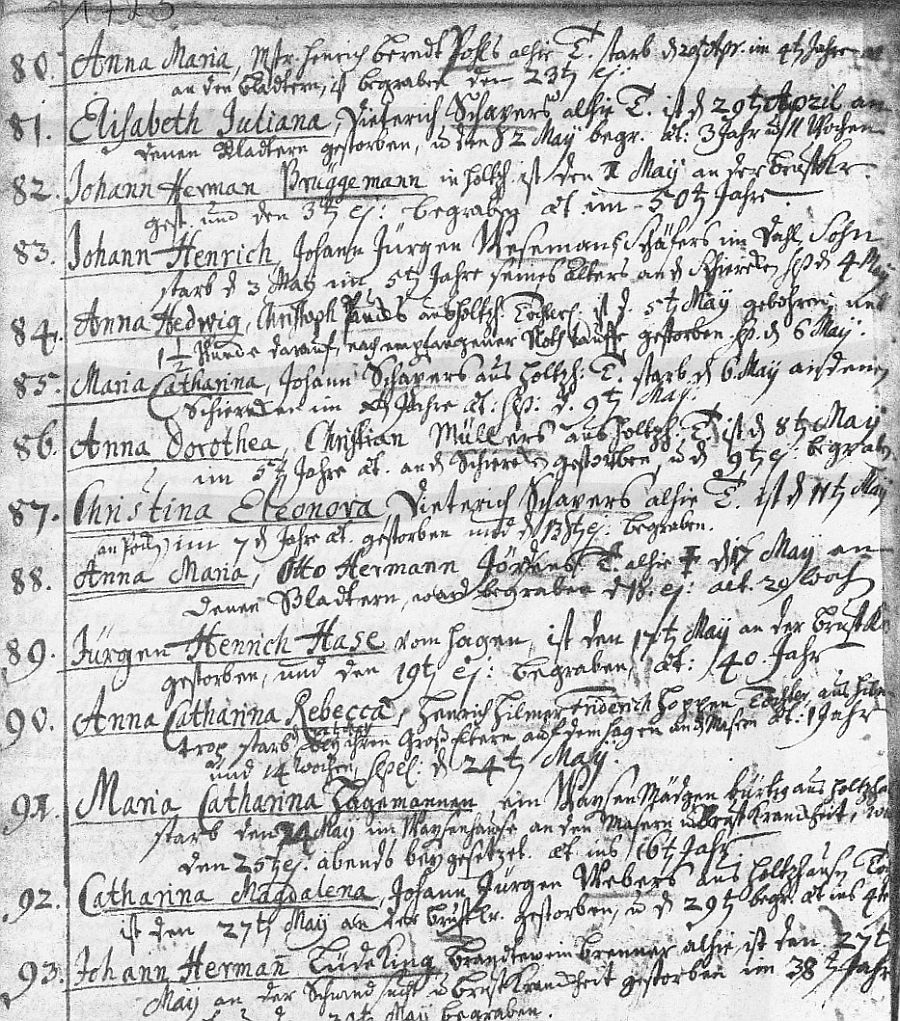 80. Anna Maria, Mstr. Henrich Berndt Pohls alhie T. starb d 20t Apr. im 4tJahre
an den Bladtern, ist begraben den 23t ej:
81. Elisabeth Juliana, Dieterich Schapers alhie T. ist d 29t April an
denen Bladtern gestorben, u den 2 Maÿ begr. æt: 3 Jahr u 11 Wochen
82. Johann Herman Brüggemann in Holtzh. ist den 1 Maÿ an der Brustkr.
gest. und den 3t ej: begraben æt. im 50t Jahre.
83. Johann Henrich, Johann Jürgen Wesemans Schäfers im Dahl Sohn
starb d 3 Maÿ im 5t Jahre seines Alters an d Schiereken sp. d 4 Maÿ
84. Anna Hedwig, Christoph aus Holtzh. Töchterl. ist d. 5t Maÿ gebohren, und
1½ Stunde darauf, nach empfangener Noth Tauffe gestorben, sp. d. 6 Maÿ.
85. Maria Catharina, Johann Schapers aus Holtzh: T. starb d 6 Maÿ an denen
Schiereken im Jahre æt. sp: d. 9t Maj.
86. Anna Dorothea, Christian Müllers aus Holtzh. T. ist d 8t Maÿ
im 5t Jahre æt. an d Schiereken gestorben, u d 9t ej: begraben
87. Christina Eleonora, Dieterich Schapers alhie T. ist d 11t Maÿ
an im 7 d Jahre æt. gestorben und d 13t ej: begraben.
88. Anna Maria, Otto Hermann Jördens T. alhie d 17 Maÿ an
denen Bladtern, ward begraben d 18. ej: æt. 29 Woch
89. Jürgen Henrich Hase vom Hagen, ist den 17t Maÿ an der Brustkr
gestorben, und den 19t ej: begraben, æt: 40. Jahr
90. Anna Catharina Rebecca, Henrich Hilmer Friderich Hoppen Töchterl. aus Hilen
trop starb bey ihren Groß Eltern auf dem Hagen an d Masern æt: 1 Jahr
und 14 Wochen, sepel: d 24t Maÿ.
91. Maria Catharina Tögemannen ein Waysen Mädgen bürtig aus Holtzh
starb den 24 Maÿ im Waysenhause an den Masern u Brust Kranckheit,
den 25t ej. abends beygesetzet. æt ins 16t Jahr
92. Catharina Magdalena, Johann Jürgen Webers aus Holtzhausen
ist den 27t Maÿ an der Brustkr. gestorben, u d 29t begr. æt ins 4te
93. Johann Herman Lüdeking Brandtewein brenner alhie, ist den 27t
Maÿ an der Schwindsucht u Brust Kranckheit gestorben im 38t Jahr
Maÿ begraben.